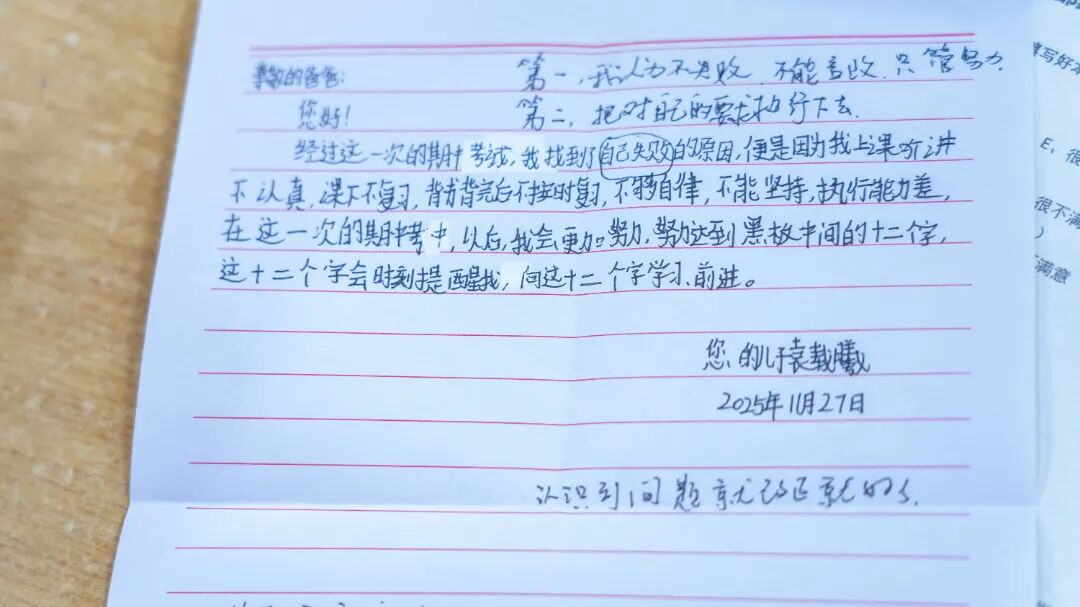 尊敬的爸爸：
第一，我认为不失败，不能言败，只管努力，
您好！
第二，把对自己的要求执行下去。
经过这一次的期中考试，我找到了自己失败的原因，便是因为我上课听讲
不认真，课下不复习，背书背完后不按时复习，不够自律，不能坚持，执行能力差，
在这一次的期中考中，以后，我会更加努力，努力达到黑板中间的十二个字，
这十二个字会时刻提醒我，向这十二个字学习、前进。
您的儿子袁载曦
2025年11月27日
认识到问题就改正就好了。
写好
E，很
很不满
）
满意